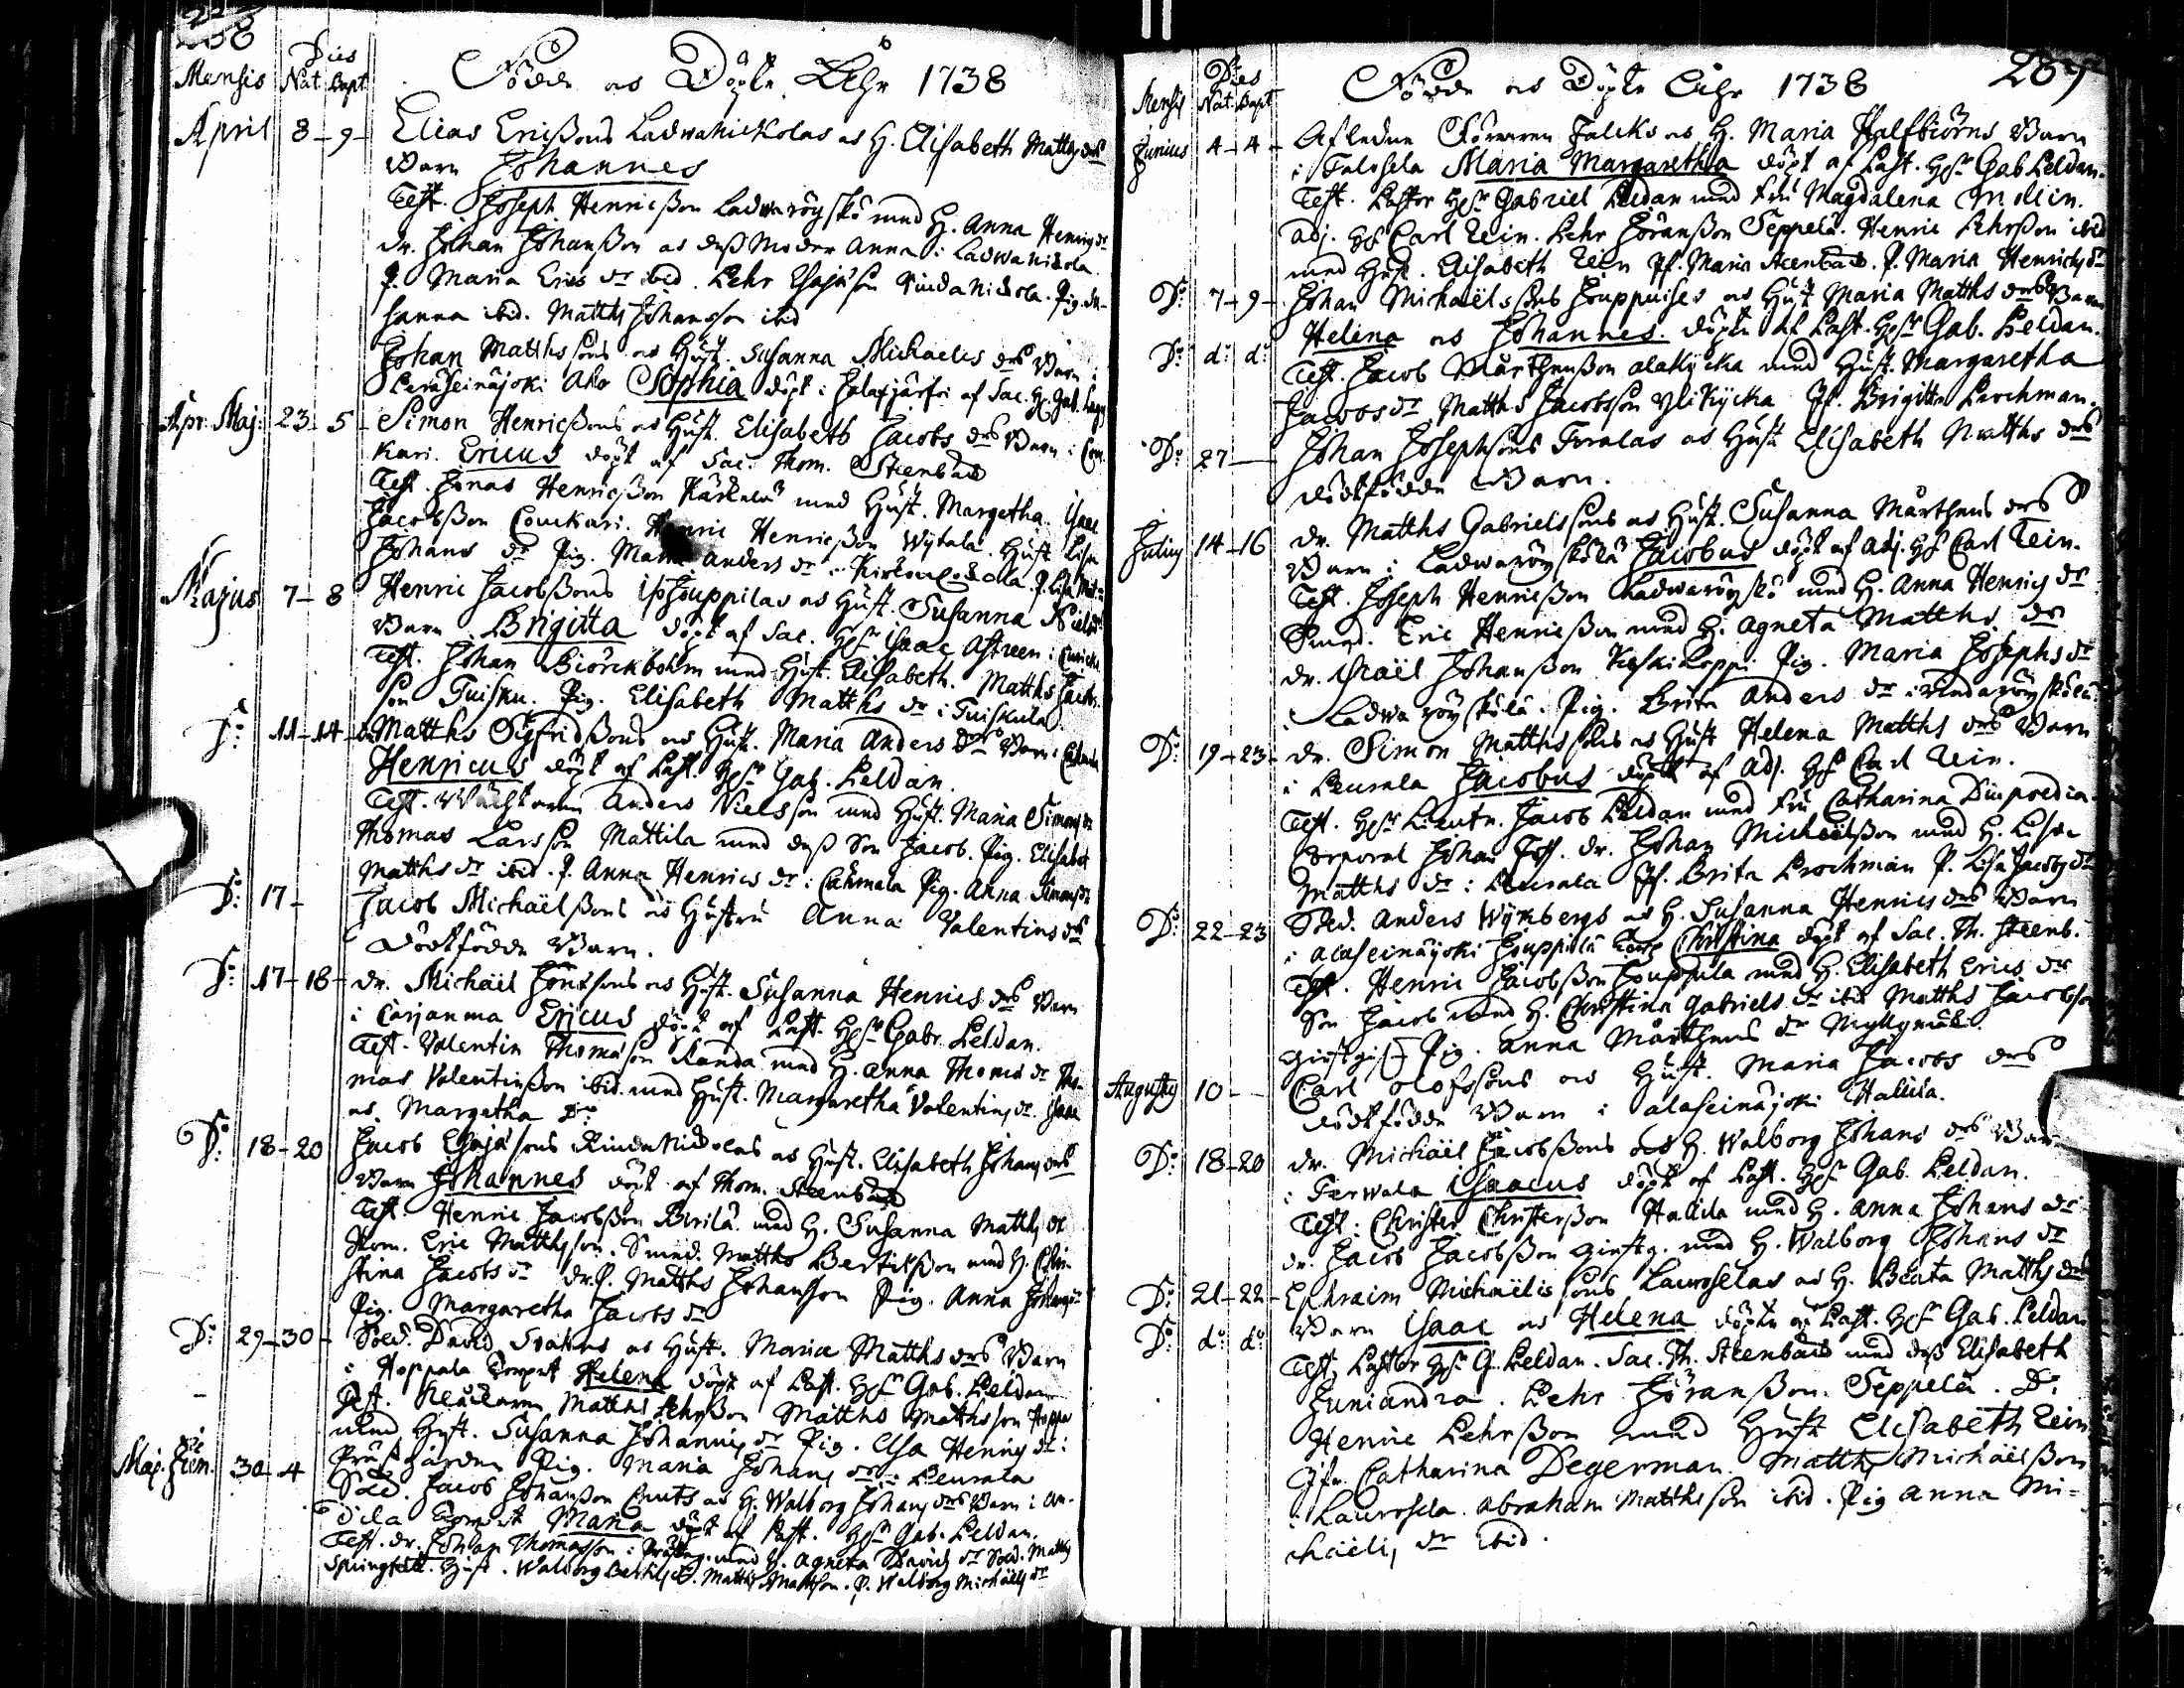 Mensis Dies Nat. Bapt. Födde as Döpte Åhr 1738
April 8-9- Elias Erißons LadwaNickolas as H. Elisabeth Matthsdrs
Barn Johannes
Test. Joseph Henricßon Ladwaröyskö med H. Anna Henricsdr
dr. Johan Johanßon as deß Moder Anna i Ladwanickola
P. Maria Erics dr ibid. Pehr Esajæson RindaNickola. Pig. Su-
sanna ibid. Matths Johansson ibid
Johan Matthssons as Hust. Susanna Michaelis drs Barn i
Peräseinäjoki Aho Sophia döpt i Jalasjärfvi af Sac. Hr. Gab.
Apr. Maj: 23-5- Simon Henricßons as Hust. Elisabeth Jacobs drs Barn i Cou-
kari. Ericus döpt af Sac. Thom. Steenbäck
Test. Jonas Henricßon Kärkelä med Hust. Margetha. Isaac
Jacobßon Coukari. Henric Henricßon Wÿtala. Hust. Lisa
Johans dr Pig. Maria Anders dr i P. Lisa
Majus 7-8 Henric Jacobßons IsoJouppilas as Hust. Susanna Niels
Barn Brigitta döpt af Sac. Hr Isaac Astreen i
Test. Johan Biörckbohm med Hust. Elisabeth. Matths Jacobs-
son Tuisku. Pig. Elisabeth Matths dr i Tuiskula
Do: 11-14- Matths Sigfridßons as Hust. Maria Anders drs Barn i
Henricus döpt af Past. Hr Gab. Peldan.
Test. Anders Nielsson med Hust. Maria Simonsdr
Thomas Larsson Mattila med deß Son Jacob. Pig. Elisabet
Matths dr ibid. P. Anna Henrics dr i Pig. Anna Simonsdr
Do: 17- Jacob Michäelßons as Hustru Anna Valentins drs
Dödfödde Barn.
Do: 17-18- dr. Michäel Jönssons as Hust. Susanna Henrics drs Barn
i Carjanma Ericus döpt af Past. Hr Gabr. Peldan.
Test. Valentin Thomason Randa med H. Anna Thomæ dr Tho-
mas Valentinßon ibid. med Hust. Margaretha Valentins dr. Isaac
as Margetha Do
Do: 18-20 Jacob Esajæsons RindaNickolas as Hust. Elisabeth Johans drs
Barn Johannes döpt af Thom. Steenbäck
Test. Henric Jacobßon Pirilä med H. Susanna Matths dr
Skom. Eric Matthsson. Smed. Matths Bertilßon med H. Chri-
stina Jacobs dr dr. P. Matths Johansson Pig. Anna Johansdr
Pig. Margaretha Jacobs dr
Do: 29-30- Sold. David as Hust. Maria Matths drs Barn
i Hoppala Torpet Helena döpt af Past. Hr Gab. Peldan
Test. Matths Pehrßon Matths Mathsson
med Hust. Susanna Johannis dr Pig. Elsa Henrics dr i
Prästgården Pig. Maria Johans dr i Peurala
Maj. Jun. 30-4 Sold. Jacob Johanßon Cnuts as H. Walborg Johans drs Barn i An-
dila Torpet Maria döpt af Past. Hr Gab. Peldan.
Test. dr. Johan Thomasson i med H. Agneta Davids dr Sold. Matths
Springfelt. Hust. Walborg Bertils dr. Matths Mattson. P. Walborg Michäels dr
289
Mensis Dies Nat. Bapt Födde as Döpte Åhr 1738
Junius 4-4- Afledne Föraren Falcks as H. Maria Halfbiörns Barn
i Talosela Maria Margaretha döpt af Past. Hr Gab Peldan.
Test. Pastor Hr Gabriel Peldan med Fru Magdalena Molin.
Adj. Hr Carl Rein. Pehr Jöranßon Seppelä. Henric Pehrßon ibid
med Hust. Elisabeth Rein Jf. Maria Steenbäck. P. Maria Henrichs dr
Do: 7-9- Johan Michaëlssons Jouppises as Hust Maria Matths drs Barn
Do do: do: Helena as Johannes. Döpte af Past. Hr Gab. Peldan.
Test. Jacob Mårthenßon Alakÿcka med Hust. Margaretha
Jacobs dr Matths Jacobsson Ylikÿcka Jf. Brigitta Perchman.
Do: 27 Johan Josephsons Toralas as Hust Elisabeth Matths drs
dödfödde Barn.
Julius 14-16 dr. Matths Gabrielssons as Hust. Susanna Mårthens drs
Barn i Ladwaröysköla Jacobus döpt af Adj. Hr Carl Rein.
Test. Joseph Henricßon Ladwaröyskö med H. Anna Henrics dr
Smed. Eric Henricßon med H. Agneta Matths dr
dr. Israël Johanßon Koskikoppi Pig. Maria Josephs dr
i Ladwaröysköla. Pig. Brita Anders dr i Rindaröysköla
Do: 19-23- dr. Simon Matthssons as Hust Helena Matths drs Barn
i Peurala Jacobus döpt af Adj. Hr Carl Rein.
Test. Hr Lieutn. Jacob Peldan med Fru Catharina
Corporal Johan Foss. dr. Johan Michaëlßon med H. Lisa
Matths dr i Peurala Jf. Brita Perchman P. Lisa Jacobs dr
Do: 22-23 Sold. Anders Wÿnbergs as H. Susanna Henrics drs Barn
i Alaseinäjoki Jouppila Torp Christina döpt af Sac. Th. Steenb.
Test. Henric Jacobßon Jouppila med H. Elisabeth Erics dr
Son Jacob med H. Christina Gabriels dr ibid Matths Jacobßon
Pig. Anna Mårthens dr Myllymäki.
Augustus 10- Carl Olofssons as Hust. Maria Jacobs drs
dödfödde Barn i Alaseinäjoki Hallila.
Do: 18-20 dr. Michäel Jacobßons as H. Walborg Johans drs Barn
i Terwala Isaacus döpt af Past. Hr Gab. Peldan.
Test: Christer Christerßon Hallila med H. Anna Johans dr
dr. Jacob Jacobßon med H. Walborg Johans dr
Do: 21-22- Ephraim Michaëlissons Lauroselas as H. Beata Matths drs
Do: do: do: Barn Isaac as Helena döpte af Past. Hr Gab. Peldan
Test. Pastor Hr G. Peldan. Sac. Th. Steenbäck med deß Elisabeth
Juniandra. Pehr Jöranßon Seppelä. Do
Henric Pehrßon med Hust Elisabeth Rein
Jfr. Catharina Degerman. Matths Michäelßon
i Laurosela. Abraham Matthsson ibid. Pig Anna Mi-
chaëlis dr ibid.